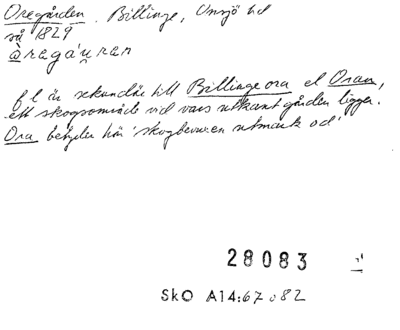 Oregården. Billinge, Onsjö hd
så 1829
òregá'u̯ren
f l är sekundär till Billinge ora el Oran,
ett skogsområde vid vars utkant gården ligger.
Ora betyder här 'skogbevuxen utmark od'
28083
SkO A14:67 082